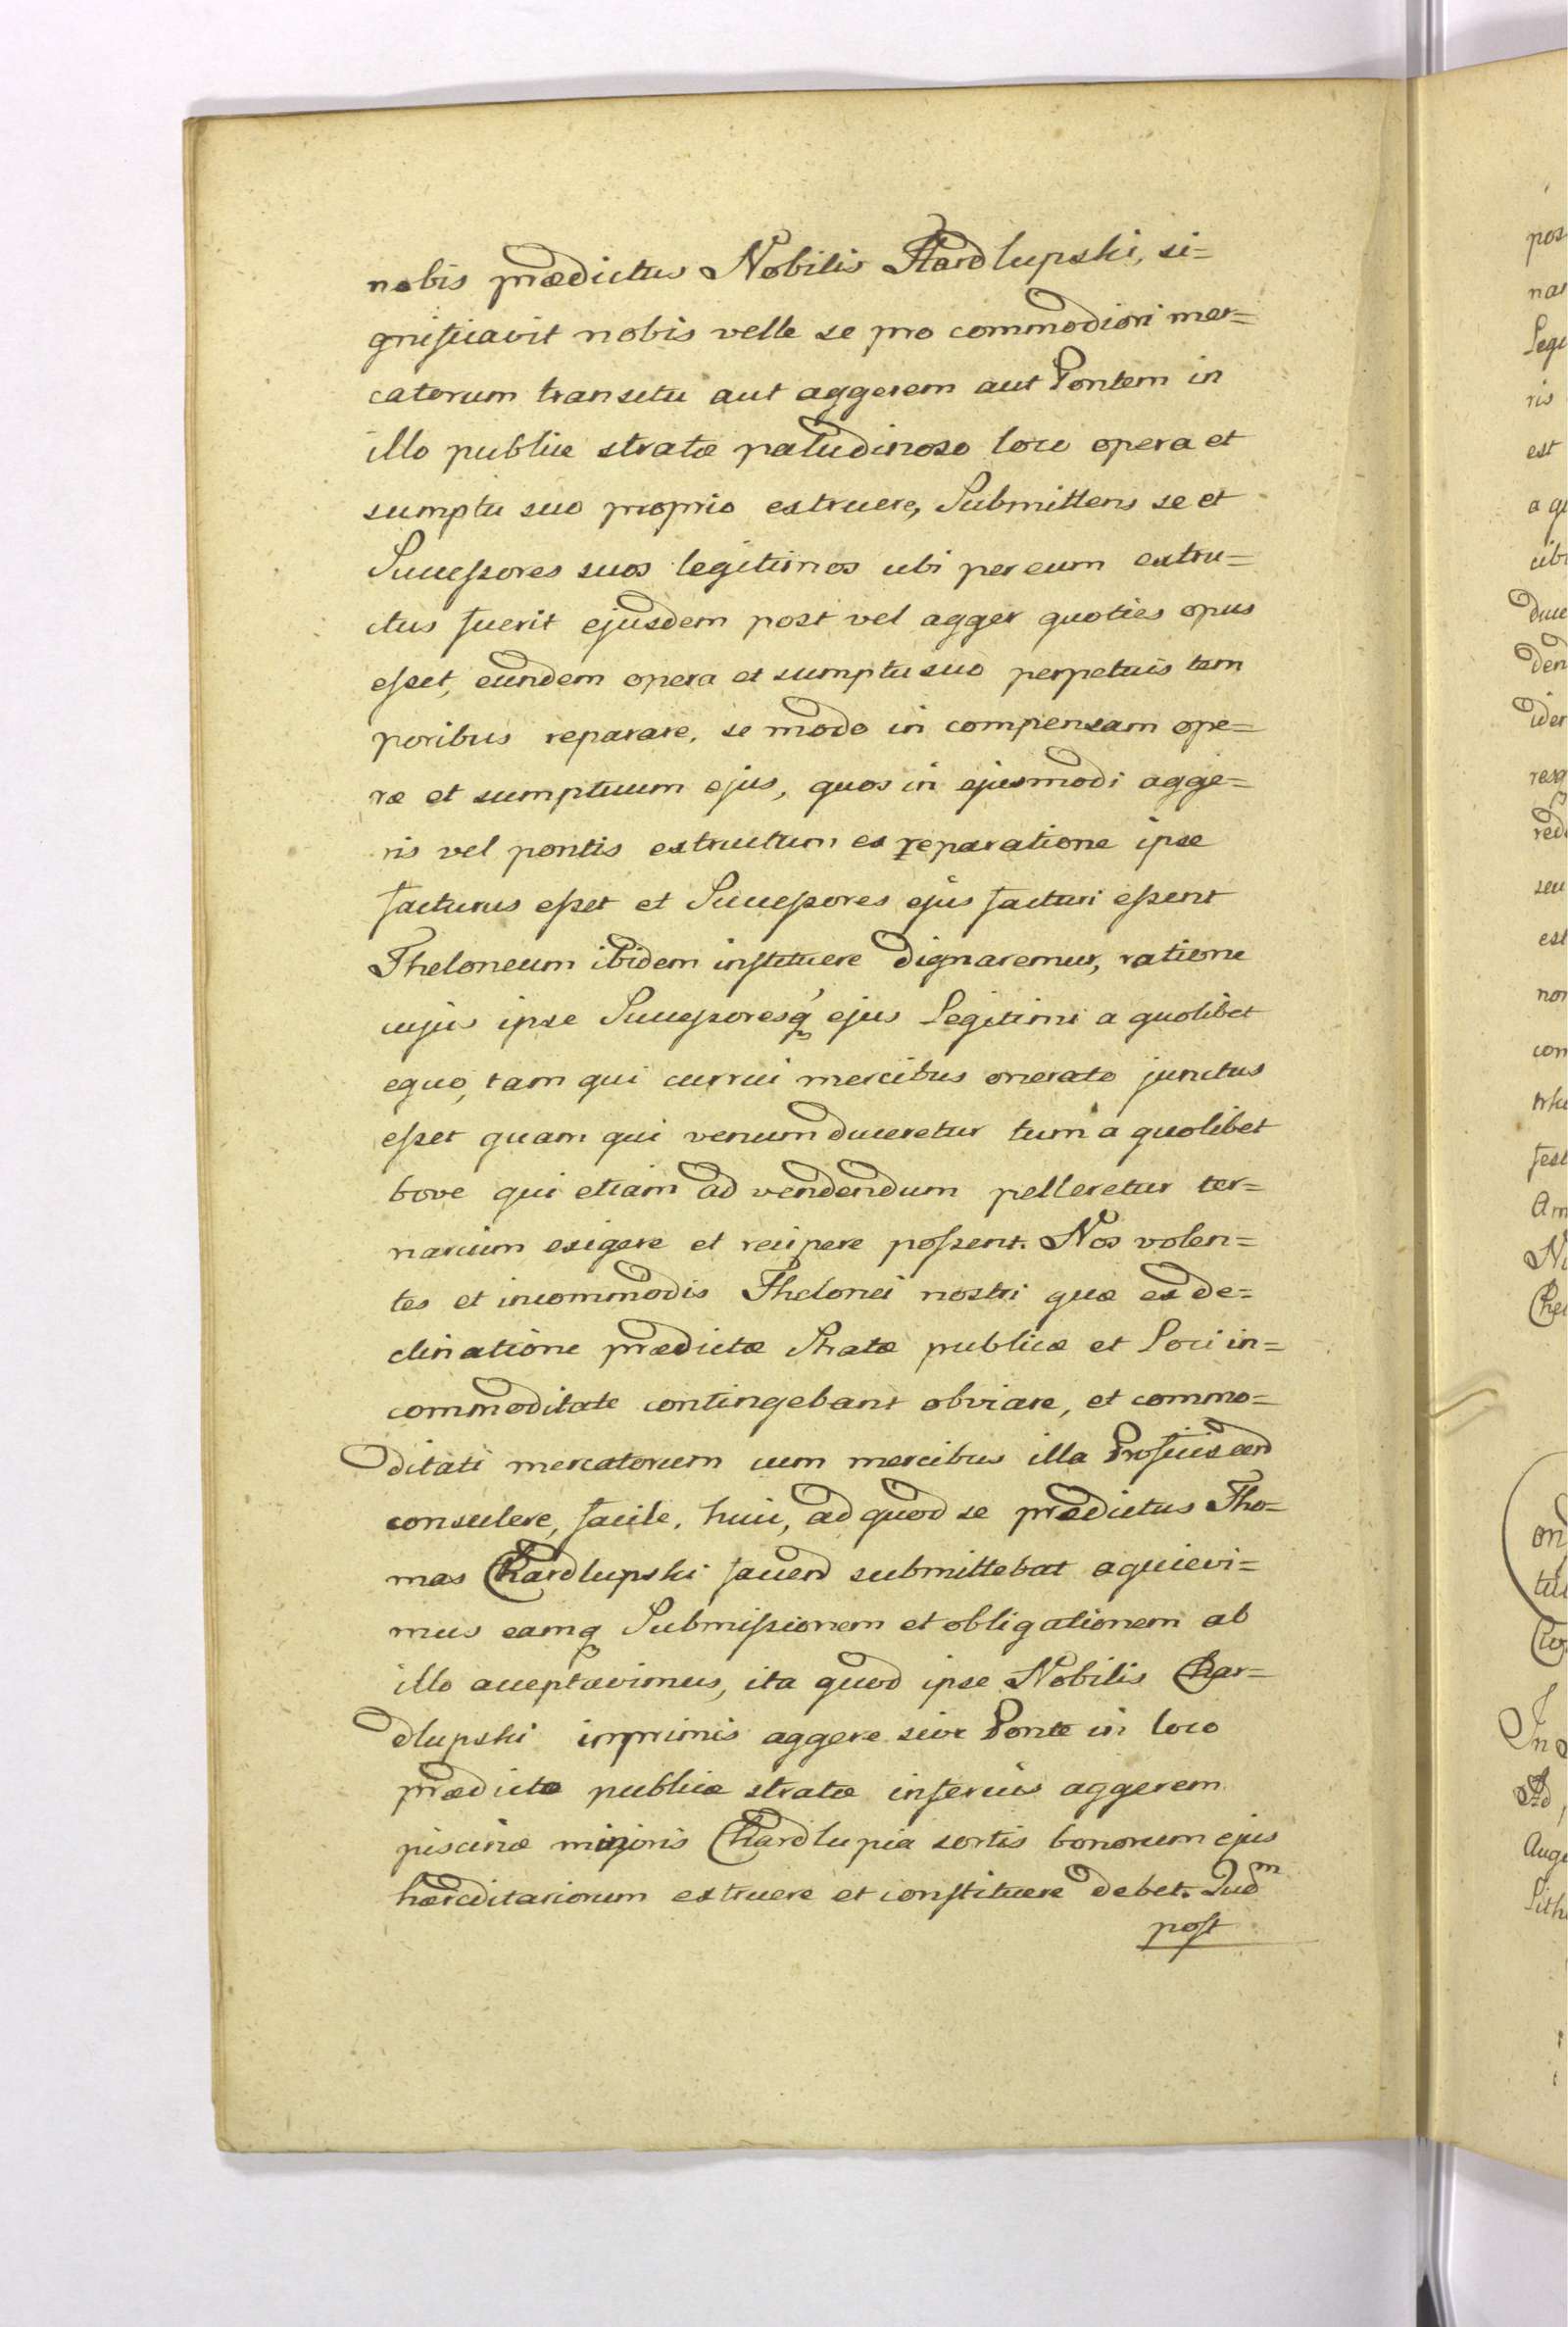 nobis prædictus Nobilis Hardlupski, si=
gnificavit nobis velle se pro commodiori mer=
catorum transitu aut aggerem aut Pontem in
illo publicæ stratæ paludinoso loco opera et
sumptu suo proprio extruere, Submittens se et
Successores suos legitimos ubi per eum extru=
ctus fuerit ejusdem post vel agger quoties opus
esset, eundem opera et sumptu suo perpetuis tem
poribus reparare, se modo in compensam ope=
ræ et sumptuum ejus, quos in ejusmodi agge=
ris vel pontis extructum ex reparatione ipse
facturus esset et Successores ejus facturi essent
Theloneum ibidem instituere dignaremur, ratione
cujus ipse Successoresq ejus Legitimi a quolibet
equo, tam qui currui mercibus onerato junctus
esset quam qui venum duceretur tum a quolibet
bove qui etiam ad vendendum pelleretur ter=
narium exigere et recipere possent. Nos volen=
tes et incommodis Thelonei nostri quæ ex de=
clinatione prædictæ Stratæ publicæ et Loci in=
commoditate contingebant obviare, et commo=
ditati mercatorum cum mercibus illa
consulere, facile, huic, ad quod se prædictus Tho=
mas Chardlupski facien submittebat aquievi=
mus eamq Submissionem et obligationem ab
illo acceptavimus, ita quod ipse Nobilis Char=
dlupski imprimis aggere sive Ponte in loco
prædicto publicæ stratæ inferius aggerem
piscinæ majoris Chardlupia sortis bonorum ejus
hæreditariorum extruere et constituere debet. Quem
post